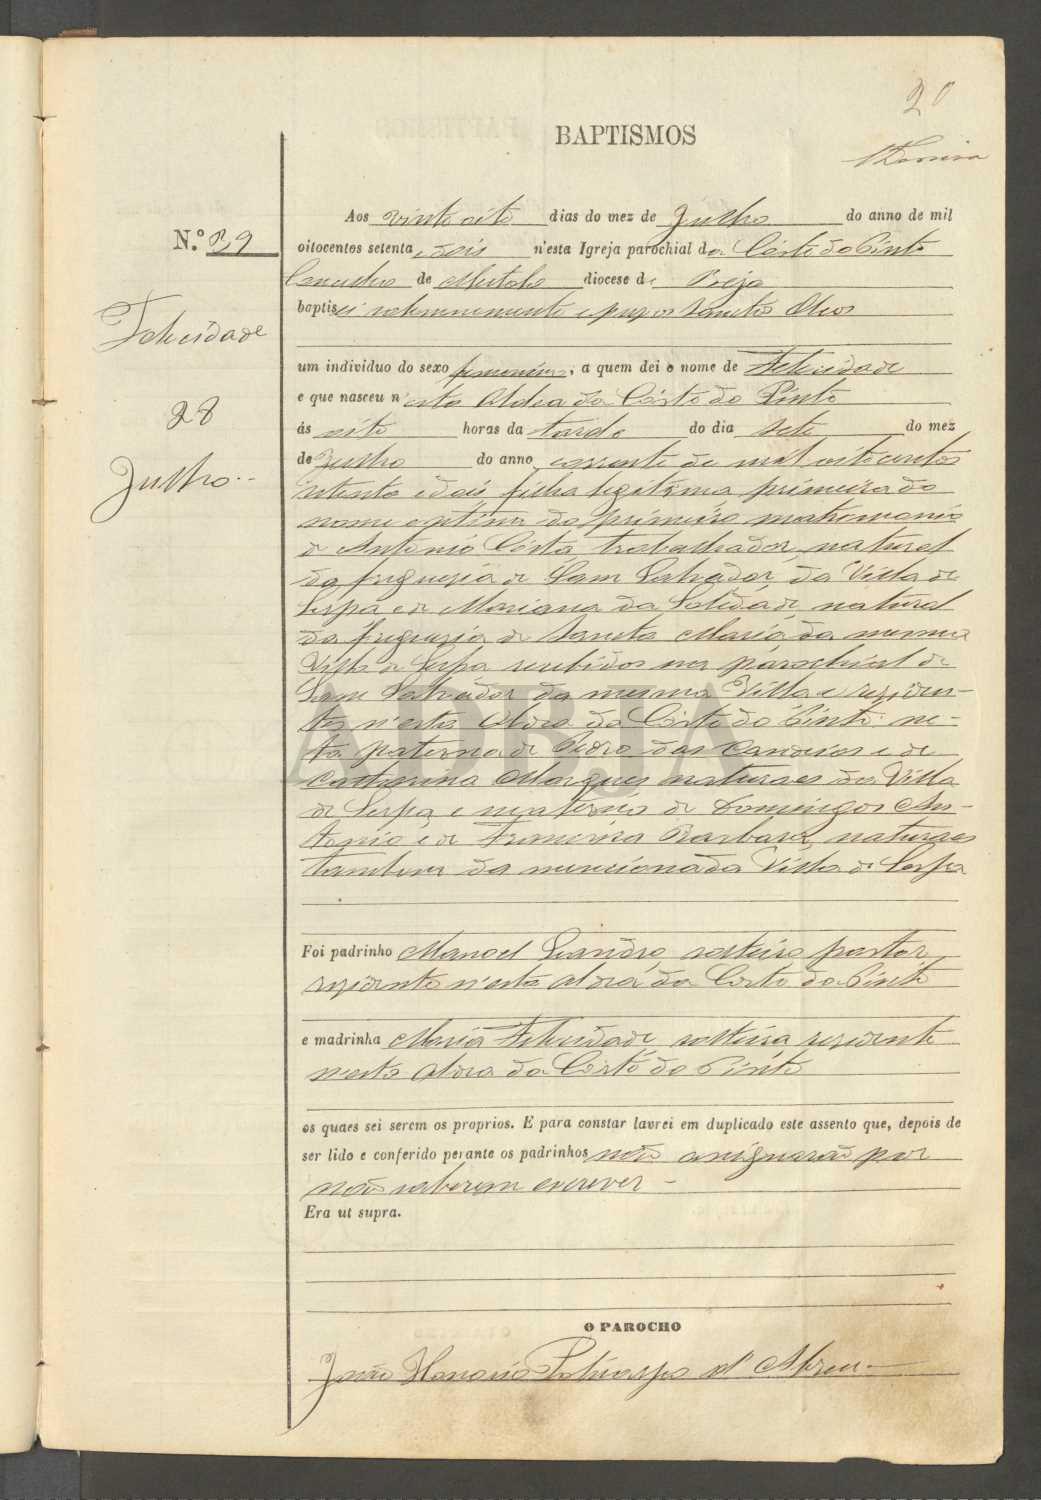 20
BAPTISMOS
N.º 39
Felicidade
28
Julho
Aos vinte oito dias do mez de Julho do anno de mil
oitocentos setenta e dois n'esta Igreja parochial da Côrte do Pinto
Concelho de Mertola diocese de Beja
baptisei solemnemente e puz os Sanctos Oleos
um individuo do sexo femenino, a quem dei o nome de Felicidade
e que nasceu n'esta Aldea da Côrte do Pinto
ás oito horas da tarde do dia sete do mez
de Julho do anno corrente de mil oitocentos
setenta e dois filha legitima primeira do
nome e setima do primeiro matrimonio
de Antonio Costa, trabalhador, natural
da freguezia de Sam Salvador da Villa de
Serpa e de Marianna da Soledade natural
da freguezia de Sancta Maria da mesma
Villa de Serpa recebidos na parochial de
Sam Salvador da mesma Villa e reziden-
tes n'esta Aldea da Côrte do Pinto: ne-
ta paterna de Pedro das Candeias e de
Catharina Marques naturaes da Villa
de Serpa, e materna de Domingos An-
tonio e de Francisca Barbara, naturaes
tambem da mencionada Villa de Serpa
Foi padrinho Manoel Leandro, solteiro pastor,
rezidente n'esta Aldea da Corte do Pinto
e madrinha Maria Felicidade, solteira rezidente
n'esta Aldea da Corte do Pinto
os quaes sei serem os proprios. E para constar lavrei em duplicado este assento que, depois de
ser lido e conferido perante os padrinhos não assignarão por
não saberem escrever -
Era ut supra.
O PAROCHO
João Honorio Policarpo d'Abreu
ADBJA